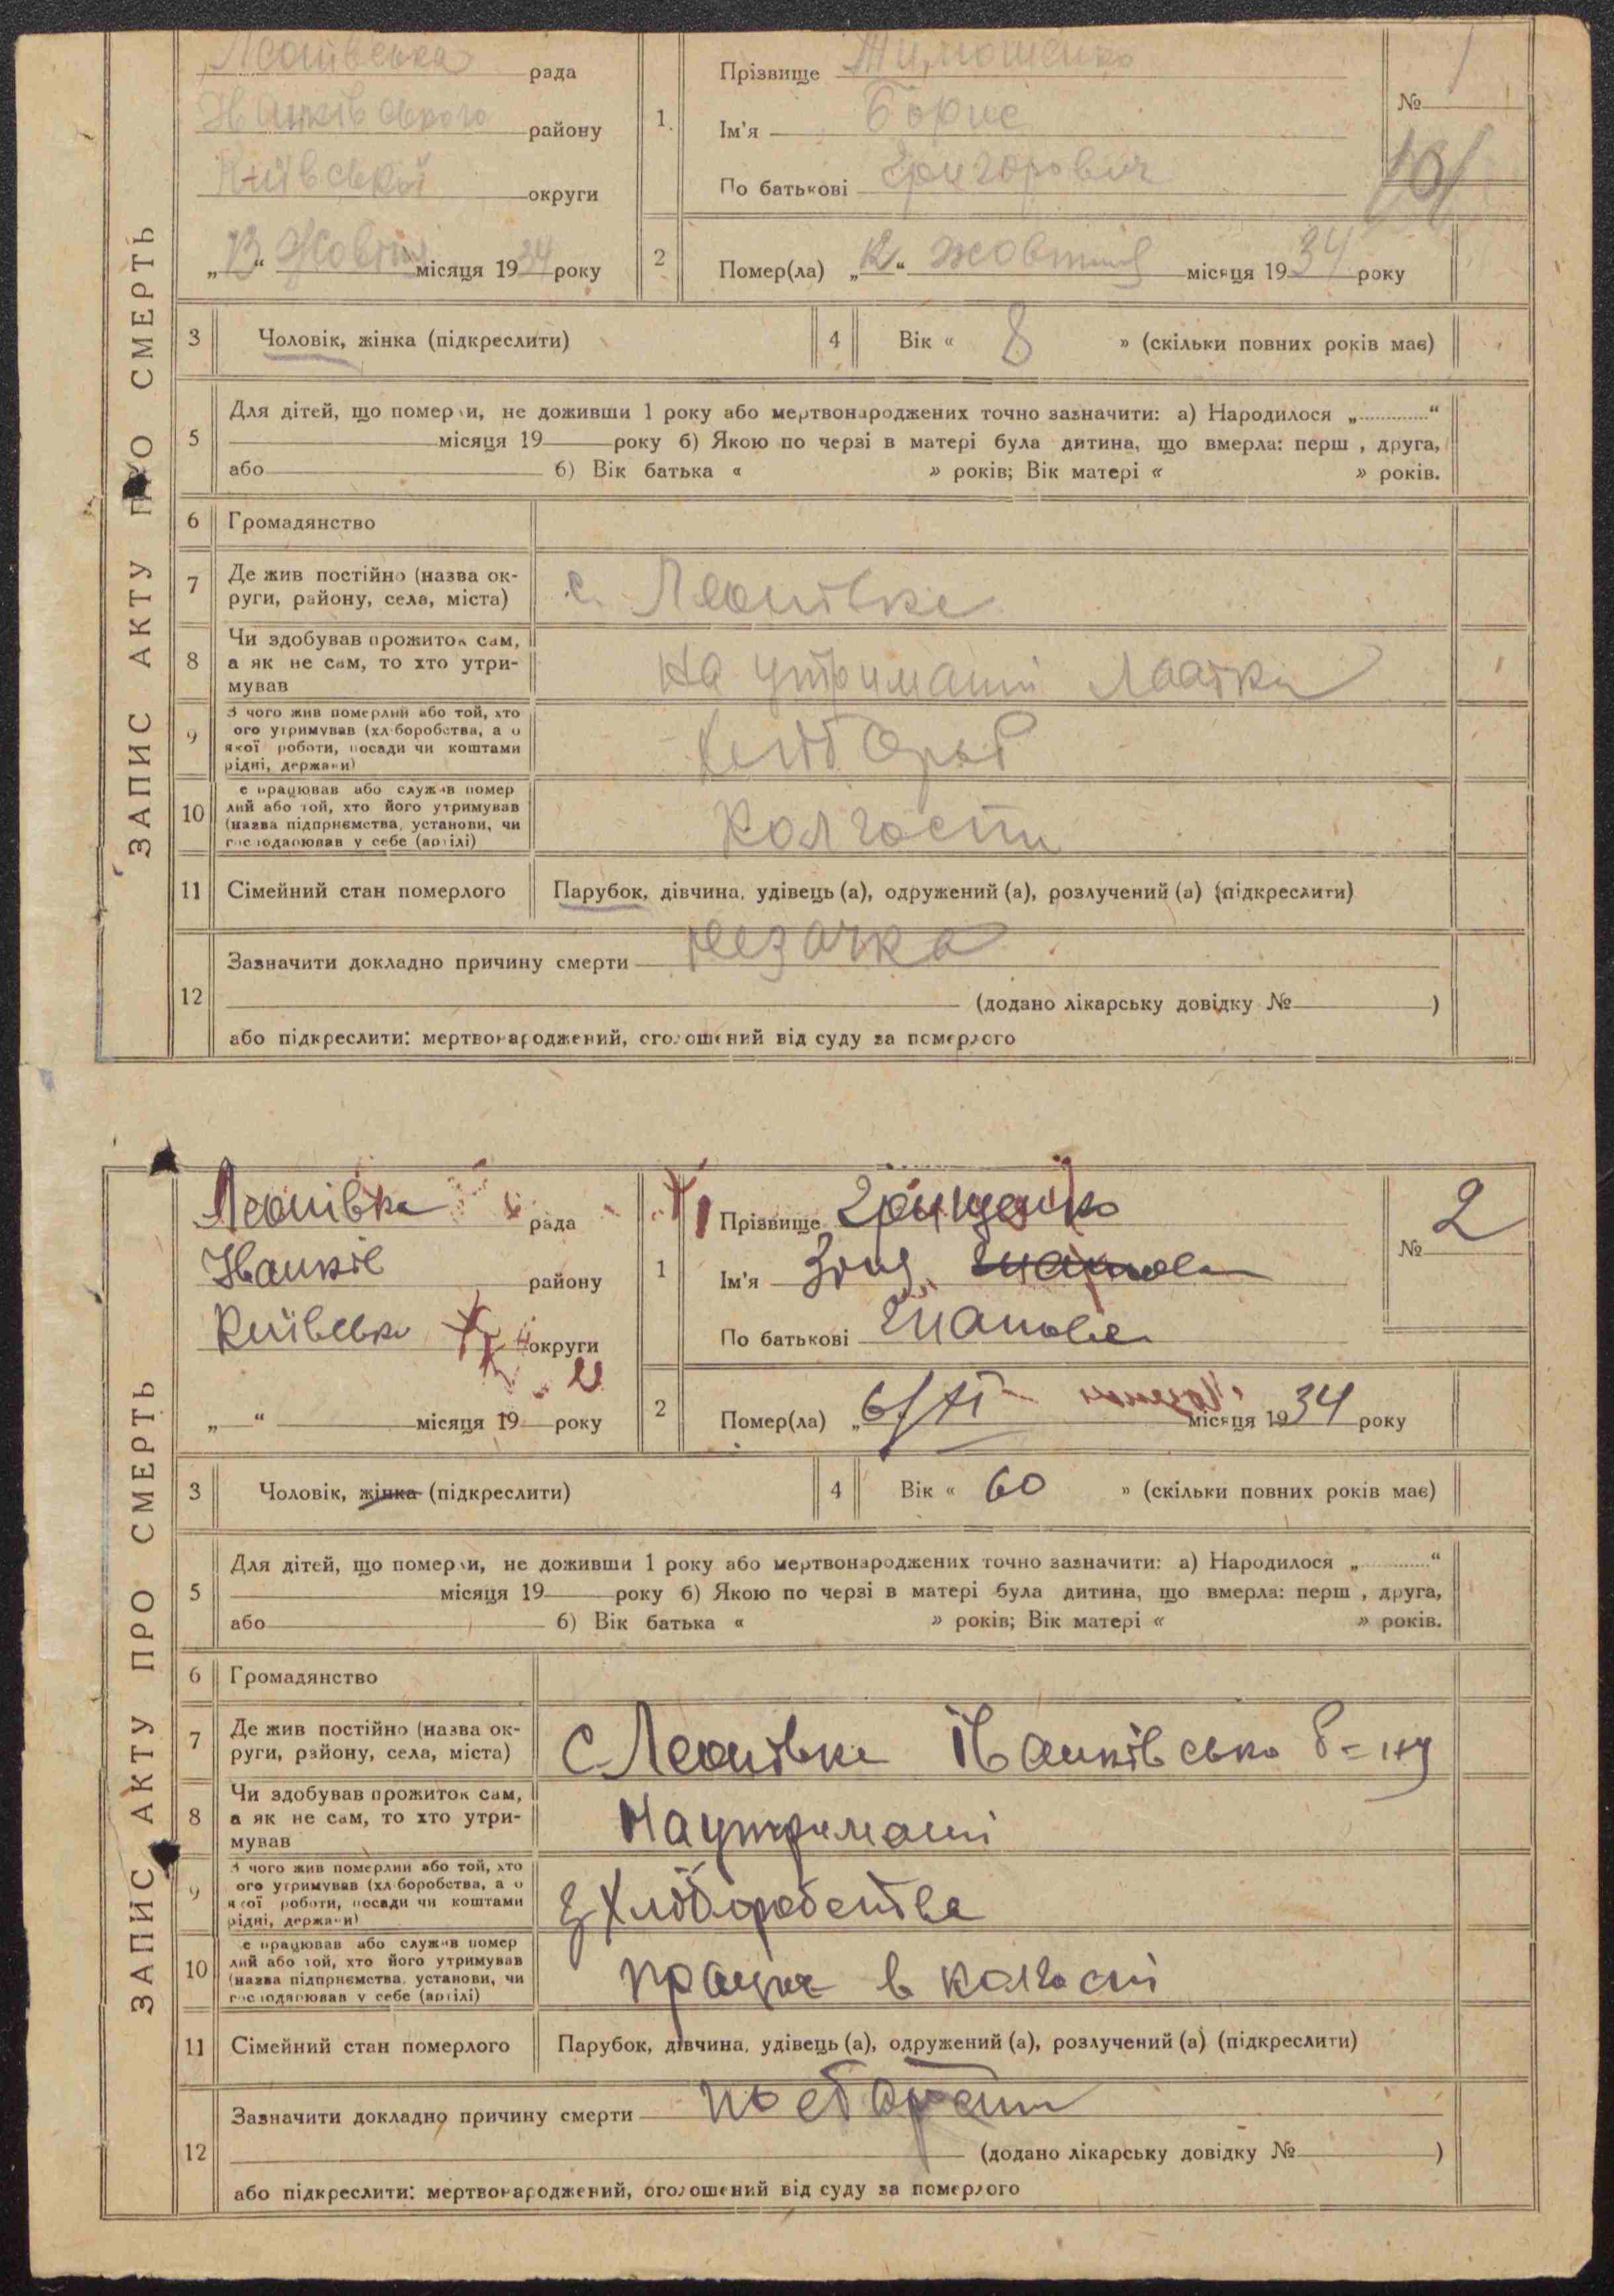 ЗАПИС АКТУ ПРО СМЕРТЬ
Леонівська рада
Іванківського району
Київської округи
„13“ Жовтня місяця 1934 року
1. Прізвище Тимошенко
Ім'я Борис
По батькові Григорович
№ 1
2 Помер(ла) „12“ жовтня місяця 1934 року
3 Чоловік, жінка (підкреслити)
4 Вік « 8 » (скільки повних років має)
5 Для дітей, що померли, не доживши 1 року або мертвонароджених точно зазначити: а) Народилося „ “
місяця 19 року б) Якою по черзі в матері була дитина, що вмерла: перш , друга,
або б) Вік батька « » років; Вік матері « » років.
6 Громадянство
7 Де жив постійно (назва ок-
руги, району, села, міста)
с. Леонівка
8 Чи здобував прожиток сам,
а як не сам, то хто утри-
мував
на утриманні
9 З чого жив померлий або той, хто
ого утримував (хл боробства, а о
якої роботи, посади чи коштами
рідні, держави)
10 е працював або служив помер
лий або той, хто його утримував
(назва підприємства, установи, чи
господарював у себе (артілі)
Колгоспи
11 Сімейний стан померлого
Парубок, дівчина, удівець (а), одружений (а), розлучений (а) (підкреслити)
12 Зазначити докладно причину смерти
(додано лікарську довідку № )
або підкреслити: мертвонароджений, оголошений від суду за померлого
ЗАПИС АКТУ ПРО СМЕРТЬ
Леонівка рада
Іванків району
Київська округи
„ “ місяця 19 року
1 Прізвище Грищенко
Ім'я
По батькові
№ 2
2 Помер(ла) „6/XI місяця 1934 року
3 Чоловік, жінка (підкреслити)
4 Вік « 60 » (скільки повних років має)
5 Для дітей, що померли, не доживши 1 року або мертвонароджених точно зазначити: а) Народилося „ “
місяця 19 року б) Якою по черзі в матері була дитина, що вмерла: перш , друга,
або б) Вік батька « » років; Вік матері « » років.
6 Громадянство
7 Де жив постійно (назва ок-
руги, району, села, міста)
с Леонівка Іванківсько р-ну
8 Чи здобував прожиток сам,
а як не сам, то хто утри-
мував
На утриманні
9 З чого жив померлий або той, хто
ого утримував (хл боробства, а о
якої роботи, посади чи коштами
рідні, держави)
з Хлоборобства
10 е працював або служив помер
лий або той, хто його утримував
(назва підприємства, установи, чи
господарював у себе (артілі)
працює в колгоспі
11 Сімейний стан померлого
Парубок, дівчина, удівець (а), одружений (а), розлучений (а) (підкреслити)
12 Зазначити докладно причину смерти по старости
(додано лікарську довідку № )
або підкреслити: мертвонароджений, оголошений від суду за померлого